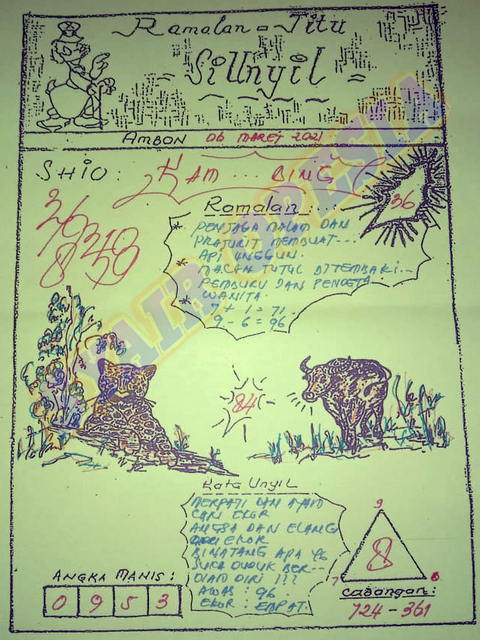 Ramalan - Jitu
Si Unyil
AMBON 06 MARET 2021
SHIO: KAM... BING
36
36
8
38
Ramalan:
* PENJAGA MALAM DAN
PRAJURIT MEMBUAT---
API UNGGUN.
* MACAN TUTUL DITEMBAKI---
PEMBURU DAN
* WANITA.
7 + 1 = 71
9 - 6 = 96
84
Kata Unyil
MERPATI DAN AYAM
CARI EKOR
ANGSA DAN ELANG
CARI EKOR
BINATANG APA YG
SUKA DUDUK BER---
DIAM DIRI ???
AWAS : 96.
EKOR : EMPAT.
ANGKA MANIS:
0 9 5 3
9
8
7
8
CADANGAN:
724 - 361